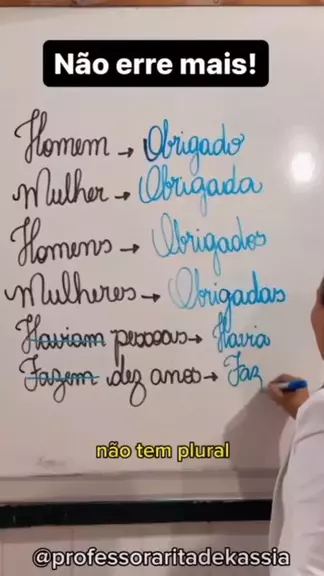 Não erre mais!
Homem → Obrigado
Mulher → Obrigada
Homens → Obrigados
Mulheres → Obrigadas
Haviam pessoas → Havia
Fazem dez anos → Faz
não tem plural
@professoraritadekassia